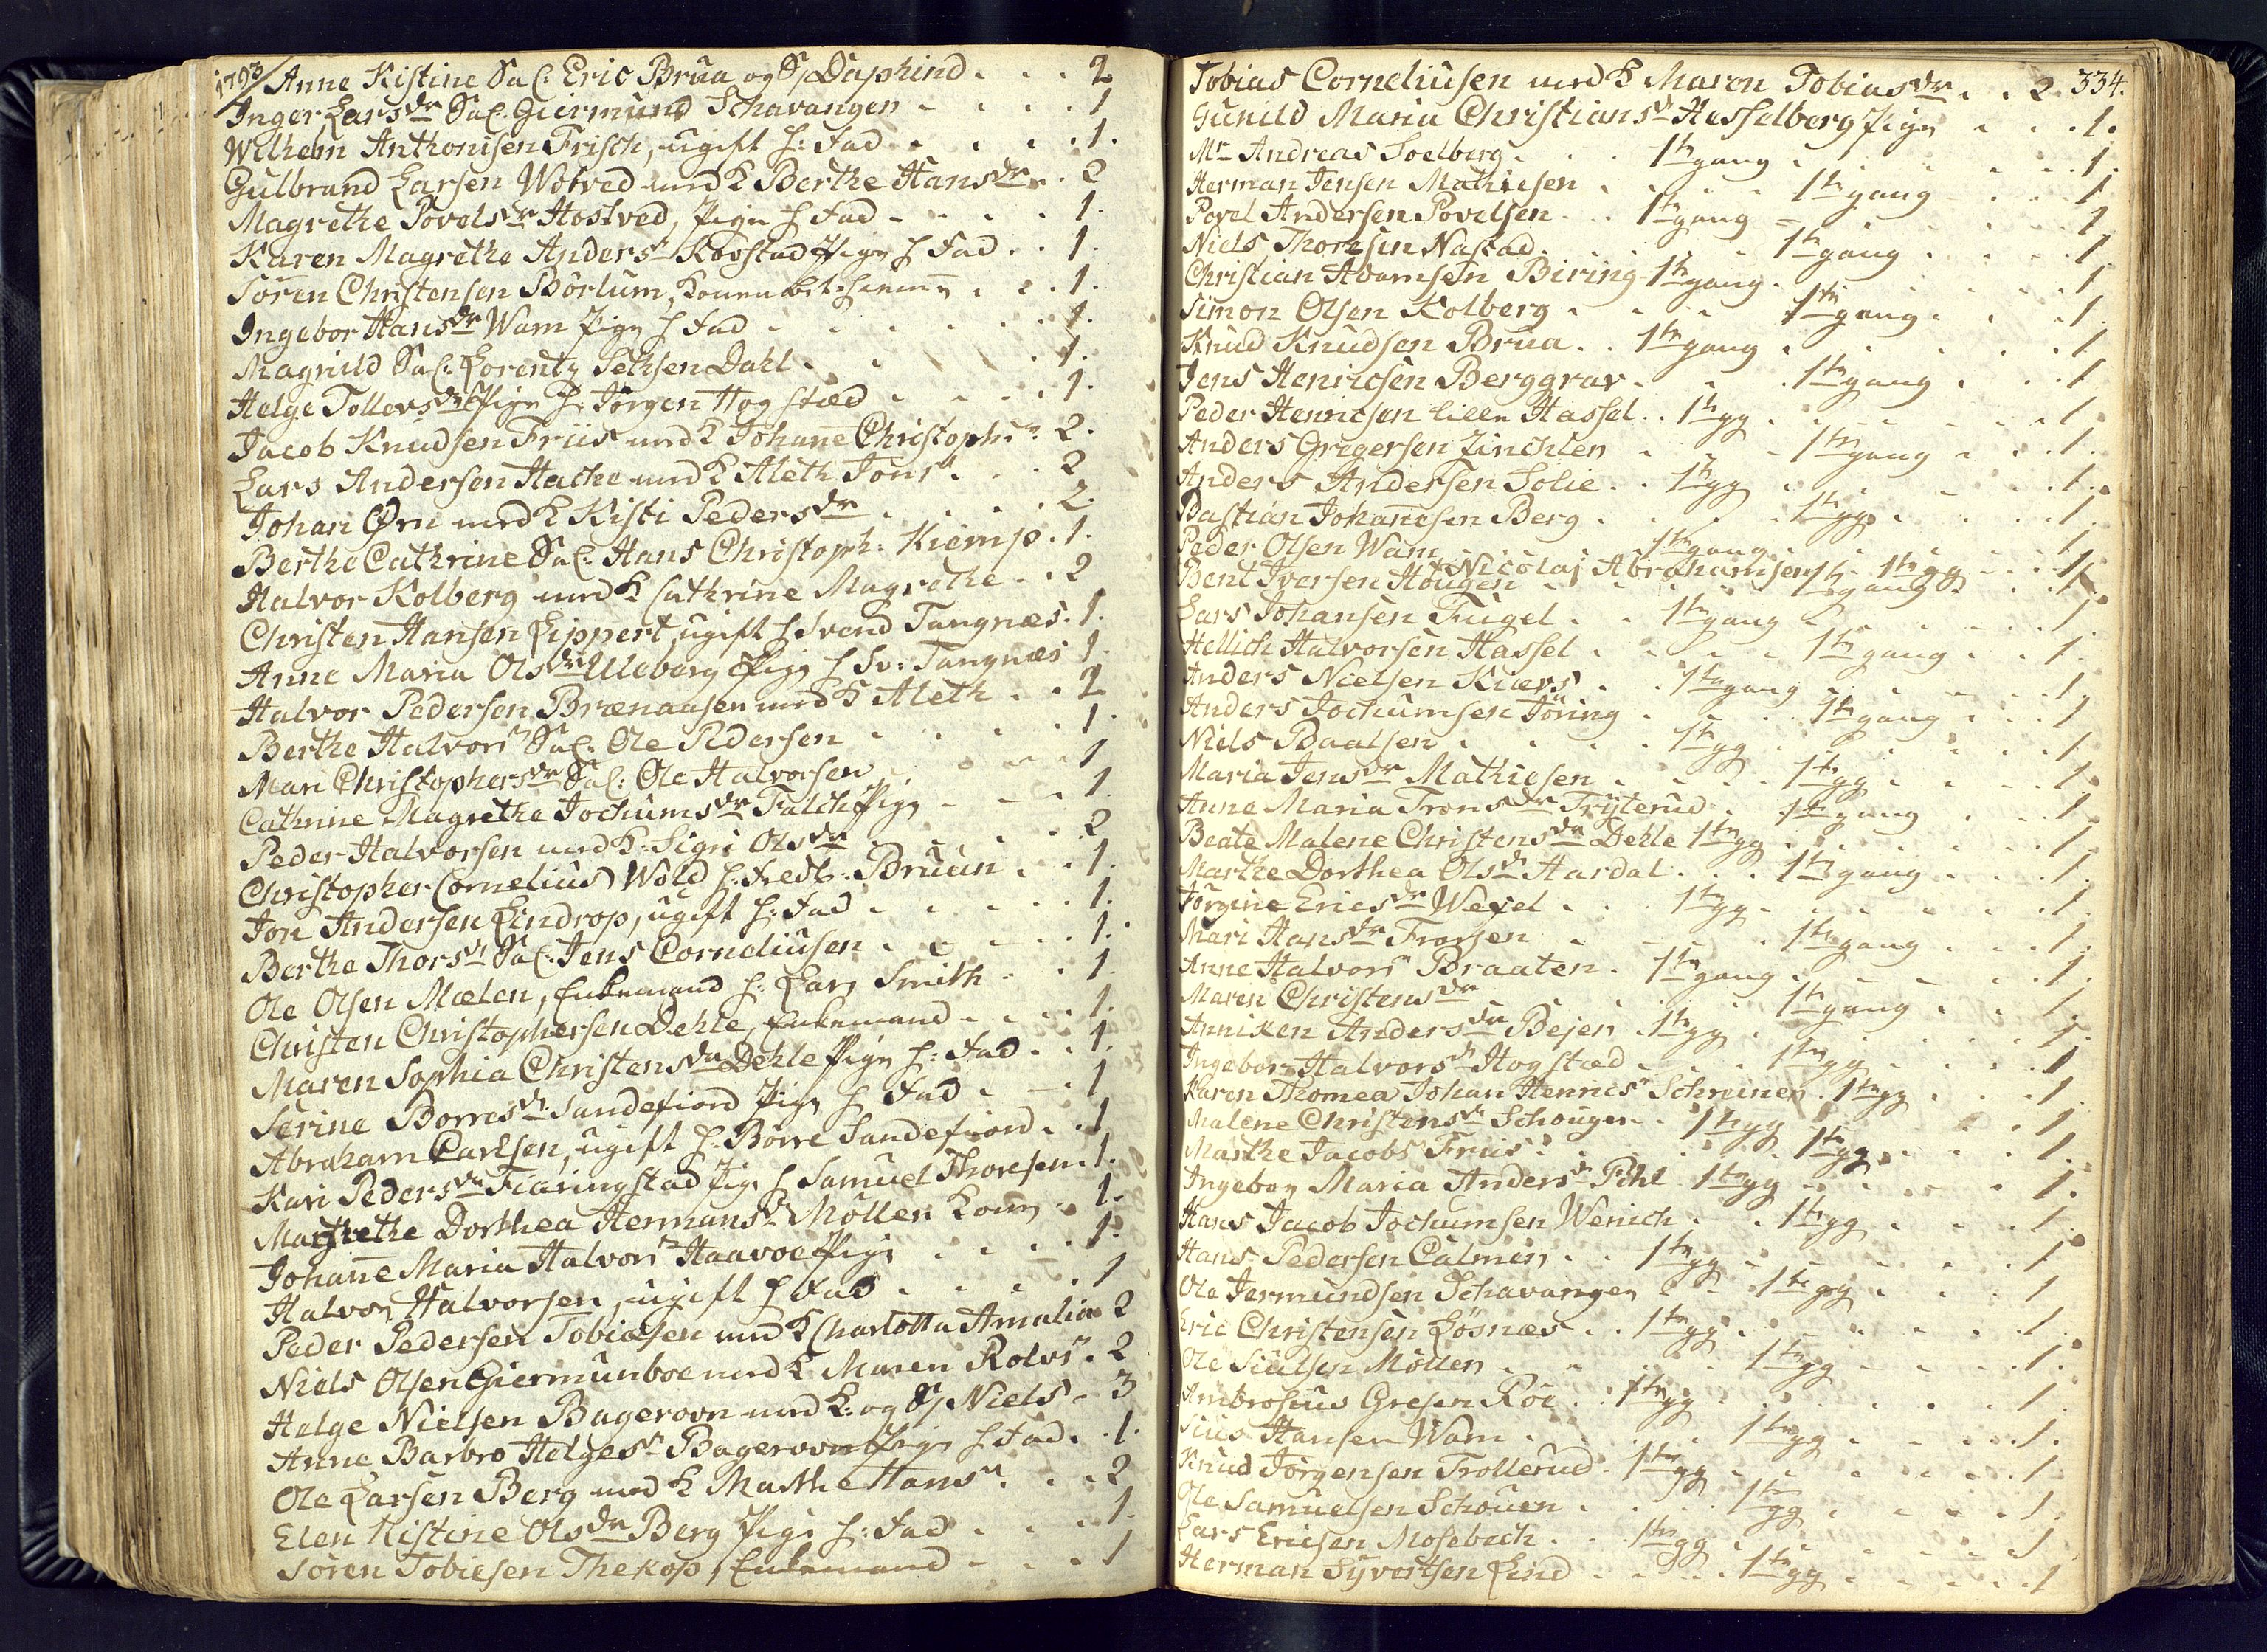 1793/ Anne Kistine Sal: Eric Brua og S/ Daphind . . . 2
Inger Lars dr Sal. Giermund Schavangen . . . . 1
Wilhelm Anthonisen Frisch, ugift h: Fad . . . . 1.
Gulbrand Larsen Wotved med K Berthe Hans dr . . 2
Magrethe Povels dr Hostved, Pige h Fad . . . . 1.
Karen Magrethe Anders dr Kovstad Pige h Fad . . 1.
Søren Christensen Børlum, . . . 1.
Ingebor Hans dr Wam Pige h Fad . . . . . 1.
Magnild Sal. Lorentz Sethsen Dahl . . . . 1.
Helge Tollevs dr Pige h: Jørgen Hogstæd . . . . 1.
Jacob Knudsen Friis med K Johan̄e Christoph dr 2.
Lars Andersen Hache med K Aleth Jons dr . . . 2
Johan Ørn med K Kisti Peders dr . . . . 2.
Berthe Cathrine Sal. Hans Christoph: Kiemp . 1.
Halvor Kolberg med K Cathrine Magrethe . . 2
Christen Hansen Lippert, ugift h Svend Tangnæs . 1.
Anne Maria Ols dr Uleberg Pige h Sv: Tangnæs 1.
Halvor Pedersen Brænaasen med K Aleth . . 2
Berthe Halvors dr Sal: Ole Pedersen . . . . 1.
Mari Christophers dr Sal: Ole Halvorsen . . . 1
Cathrine Magrethe Jochums dr Falch Pige . . . 1.
Peder Halvorsen med K: Sigri Ols dr . . . . 2
Christopher Cornelius Wold h: Fredr. Bruun . . 1.
Jon Andersen Lindrop, ugift h: Fad . . . . 1.
Berthe Thors dr Sal: Jens Corneliusen . . . . 1.
Ole Olsen Mælen, Enkemand h: Lars Smith . . 1.
Christen Christophersen Dehle, Enkemand . . . 1.
Maren Sophia Christens dr Dehle Pige h: Fad . . 1.
Serine Borres dr Sandefiord Pige h Fad . . . 1
Abraham Carlsen, ugift h. Børre Sandefiord . . 1
Kari Peders dr Fiaringstad Pige h Samuel Thoresen . 1.
Magrethe Dorthea Hermans dr Møller Kone . 1.
Johan̄e Maria Halvors dr Haavoe Pige . . . . 1.
Halvor Halvorsen, ugift h Fad . . . . . 1
Peder Pedersen Tobiæsen med K Charlotta Amalia 2
Niels Olsen Giermunboe med K Maren Rolvs dr . 2
Helge Nielsen Bagerovn med K: og S/ Niels . 3
Anne Barbro Helges dr Bagerovn Pige h Fad . . 1.
Ole Larsen Berg med K Marthe Hans dr . . 2
Elen Kistine Ols dr Berg Pige h: Fad . . . 1.
Søren Tobiesen Thekop, Enkemand . . . 1
334.
Tobias Corneliusen med K Maren Tobias dr . . 2
Gunild Maria Christians dr Hesselberg Pige . . . 1.
Mr Andreas Soelberg . . . 1te gang . . . . 1.
Herman Jensen Mathiesen . . . . 1te gang . . . 1
Povel Andersen Povelsen . . 1te gang . . . . 1
Niels Thoresen Nastad . . . . 1te gang . . . . 1
Christian Adamsen Biring 1te gang . . . . 1
Simon Olsen Kolberg . . . . 1te gang . . . 1.
Knud Knudsen Brua . . 1te gang . . . . 1
Jens Henricsen Berggrav . . . 1te gang . . . 1
Peder Henricsen lille Hassel . . 1te gg . . . . 1.
Anders Gregersen Zinchlen . . . 1te gang . . . 1.
Anders Andersen Solie . . 1te gg . . . . 1.
Bastian Johan̄esen Berg . . . . 1te gg . . . . 1
Peder Olsen Wam . . . 1te gang . . . . 1.
+ Nicolaj Abrahamsen . 1te gg . . . 1
Bent Iversen Hougen . . . . 1te gang . . . 1.
Lars Johansen Fugel . . 1te gang . . . . 1
Hellich Halvorsen Hassel . . . . 1te gang . . 1.
Anders Nielsen Kiærs . . 1te gang . . . . 1.
Anders Jochumsen Jüring . . . 1te gang . . . 1
Niels Paalsen . . . . 1te gg . . . . 1
Maria Jens dr Mathiesen . . . 1te gg . . . . 1.
Anne Maria Trons dr Tryterud . . 1te gang . . . 1
Beate Malene Christens dr Dehle 1te gg . . . . 1
Marthe Dorthea Ols dr Hardal . . . 1te gang . . . 1.
Jørgine Erics dr Wexel . . 1te gg . . . . 1.
Mari Hans dr Frorsen . . . . 1te gang . . . 1.
Anne Halvors dr Braaten . 1te gang . . . . 1.
Maren Christens dr . . . . 1te gang . . . 1.
Anniken Anders dr Bejer . 1te gg . . . . 1.
Ingebor Halvors dr Hogstæd . . . 1te gg . . . 1
Karen Thomea Johan Henrics dr Schreiner . 1te gg . . . 1
Malene Christens dr Schouger . 1te gg . . . 1
Marthe Jacobs dr Friis . . . . 1te gg . . . 1.
Ingebor Maria Anders dr Pihl 1te gg . . . 1.
Hans Jacob Jochumsen Wenich . . 1te gg . . . 1
Hans Pedersen Calmin . . 1te gg . . . . 1
Ole Jermundsen Schavangen . . 1te gg . . . 1
Eric Christensen Løsnæs . . 1te gg . . . . 1.
Ole Siulsen Möller . . . . 1te gg . . . 1.
Ambrosius Gresen Röe . . 1te gg . . . . 1.
Siul Hansen Wam . . . . 1te gg . . . 1.
Knud Jørgensen Trollerud . 1te gg . . . . 1.
Ole Samuelsen Schouen . . . 1te gg . . . . 1.
Lars Ericsen Mosebech . . 1te gg . . . . 1
Herman Syvertsen Lind . . . . 1te gg . . . . 1